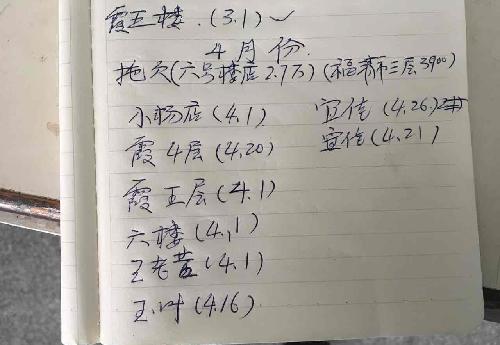 霞五楼.(3.1)✓
4月份.
拖欠(六号楼店2.7万)(福寿三层3900)
小杨店(4.1) 宜佳(4.26)
霞4层(4.20) 宜佳(4.21)
霞五层(4.1)
六楼(4.1)
王老黄(4.1)
王叶(4.16)